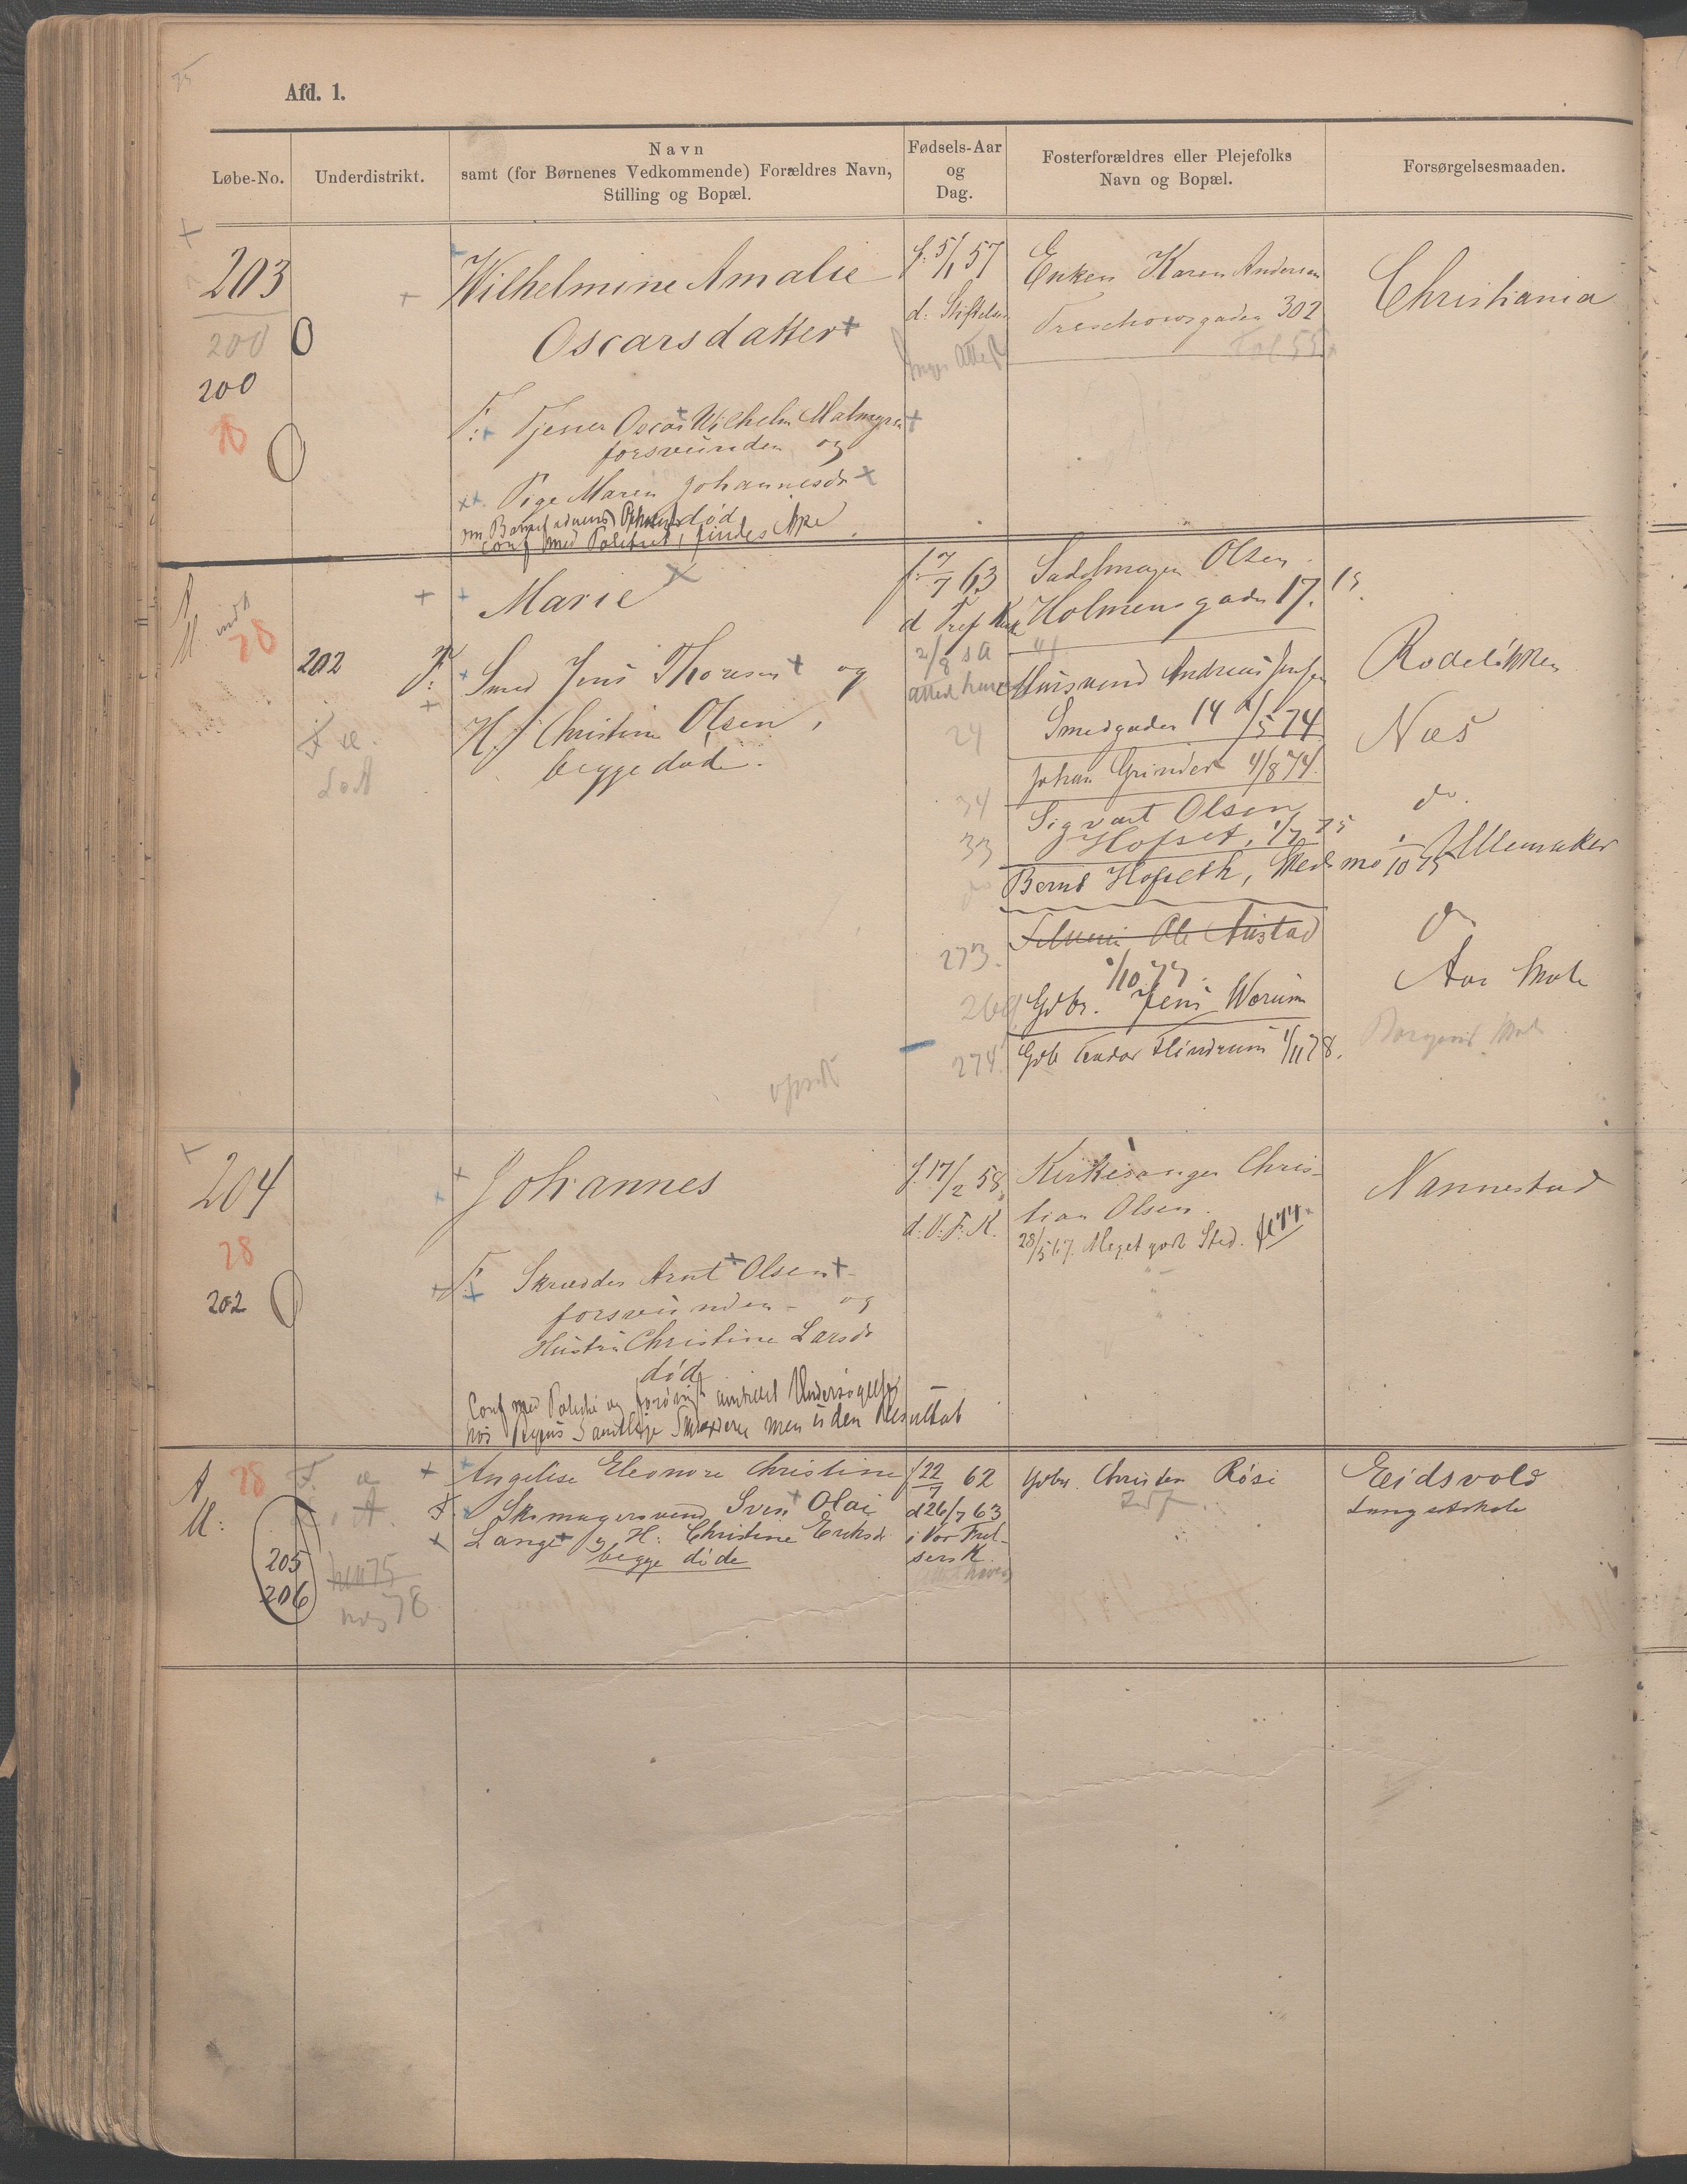 Afd. 1.
Løbe-No.
Underdistrikt.
Navn
samt (for Børnenes Vedkommende) Forældres Navn,
Stilling og Bopæl.
Fødsels-Aar
og
Dag.
Fosterforældres eller Plejefolks
Navn og Bopæl.
Forsørgelsesmaaden.
203
200
200
Wilhelmine Amalie
Oscarsdatter
F: Tjener Oscar Wilhelm
forsvunden og
Pige Maren Johannesdr
død
Conf med Politiet, findes ikke
f. 5/1 57
d: Stiftelsen
Enken Karen Andersen
Treschowsgaden 302
Christiania
A
M.
78
202
Marie
F: Smed Jens Thoresen og
H. Christine Olsen,
begge døde.
f. 7/7 63
d Fref Kirke
2/8 s A
24
34
33
273.
269
274.
Sadelmager Olsen
Holmensgade 17.
Andreas Jensen
Smedgaden 14 /5 74
Johan Grinder 4/8 74.
Sigvart Olsen
Hofset, 1/7 75
Bernt Hofseth, Medsmo 1/10 75
Ole Austad
1/10 77.
Gdbr. Jens Worum
Gdb Flindrum 1/11 78.
Rodeløkken
Næs
do.
Ullensaker
do
Aas Skole
204
28
202
Johannes
F. Skrædder Arnt Olsen
forsvunden og
Hustru Christine Larsdr
død
Conf med Politiet og forøvrigt anstillet Undersøgelse
hos Byens Samtlige men uden Resultat
f. 17/2 58,
d. V. F. K.
Kirkesanger Chris-
tian Olsen.
28/5 67. Meget godt Sted.
Nannestad
A
M:
78
205
206
78
Angelise Eleonore Christine
F. Skomagersvend Sven Olai
Lange og H: Christine Eriksdr
begge døde
f 22/7 62
d 26/7 63
i Vor Frel-
sers K.
Gdbr. Christen Røsi
Eidsvold
Langsetskole